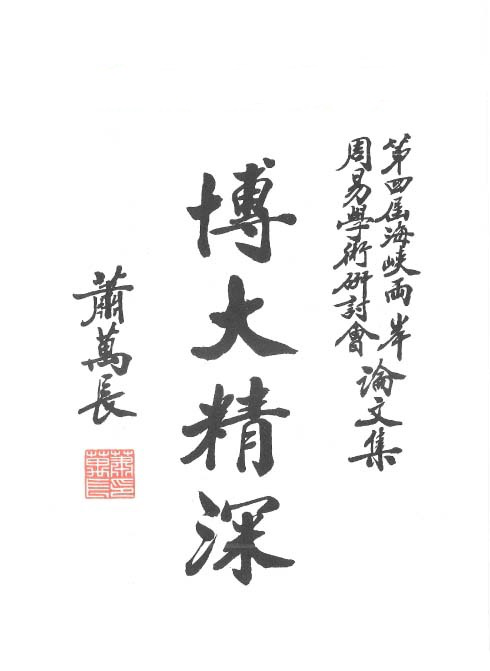 第四屆海峽兩岸
周易學術研討會
論文集
博大精深
蕭萬長